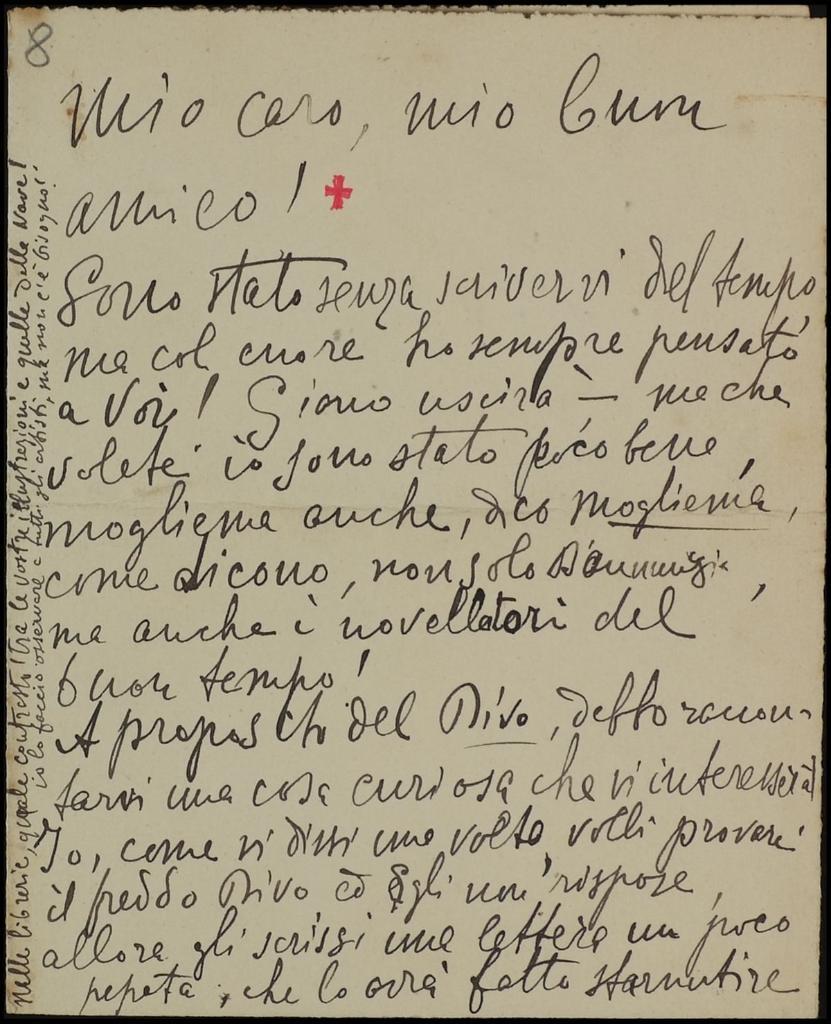 8
Mio caro, mio buon
amico!
Sono stato senza scrivervi del tempo
ma col cuore ho sempre pensato
a Voi! Giorno uscirà — ma che
volete io sono stato poco bene,
mogliema anche, dico mogliema,
come dicono, non solo D'Annunzio,
ma anche i novellatori del
buon tempo!
A proposito del Divo, debbo raccon-
tarvi una cosa curiosa che vi interesserà
Io, come vi dissi una volta, volli provare
il freddo Divo ed Egli non rispose,
allora gli scrissi una lettera un poco
pepata, che lo avrà fatto starnutire
Nelle librerie, quale contrasto! tra le vostre illustrazioni e quelle della Nave!
io lo faccio osservare a tutti gli artisti, ma non c'è bisogno!